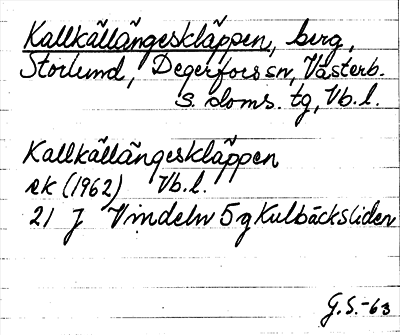 Kallkällängeskläppen, berg,
Storlund, Degerfors sn, Västerb.
s. doms. tg, Vb. l.
Kallkällängeskläppen
ek (1962) Vb. l.
21 J Vindeln 5 g Kulbäcksliden
G.S.-63